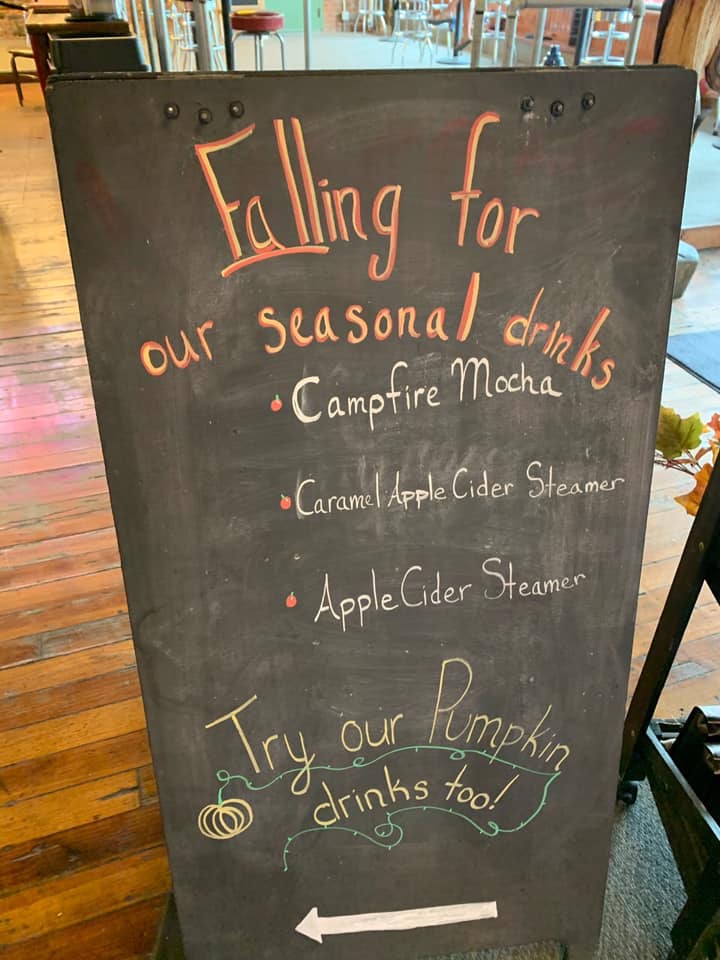 Falling for
our seasonal drinks
Campfire Mocha
Caramel Apple Cider Steamer
Apple Cider Steamer
Try our Pumpkin
drinks too!